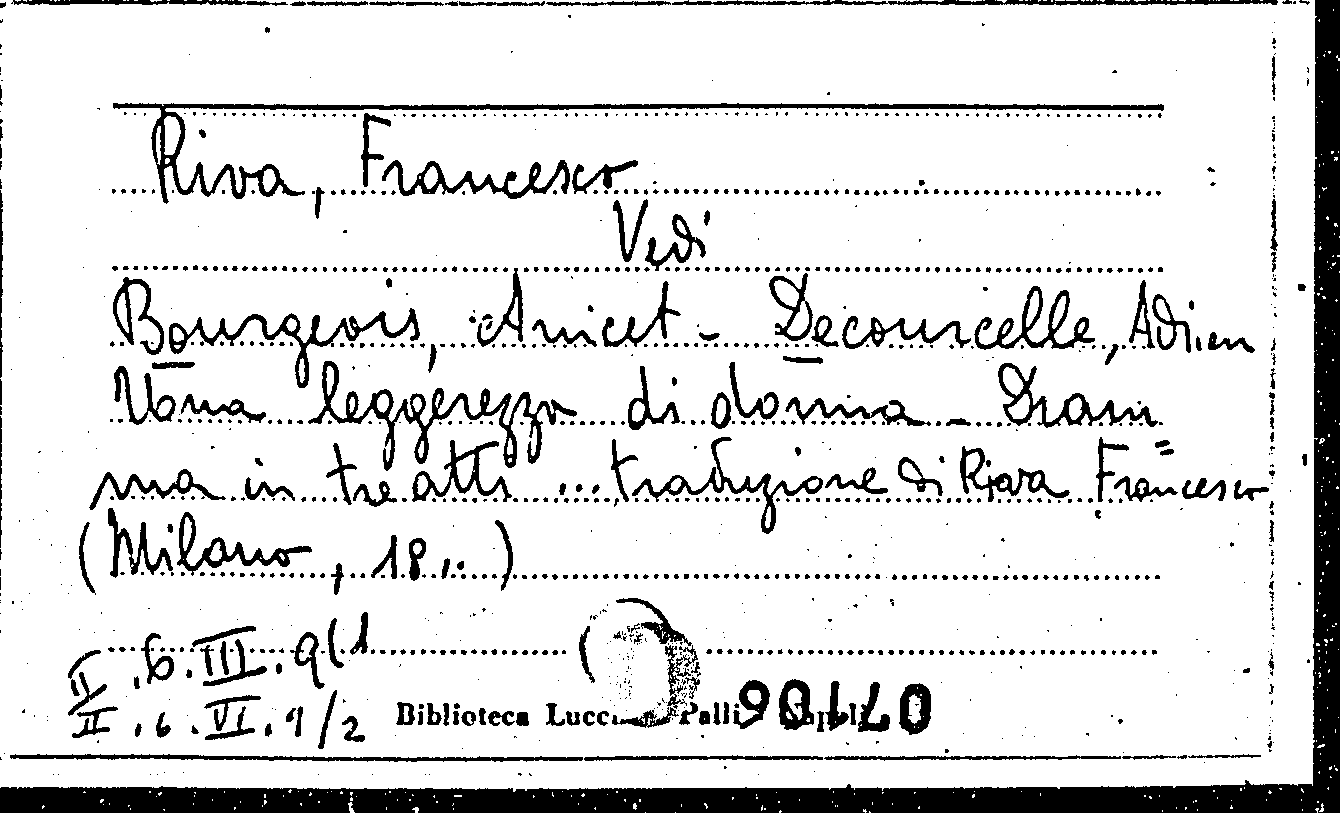 Riva, Francesco
Vedi
Bourgeois, Anicet - Decourcelle, Adrien
Una leggerezza di donna - Dram
ma in tre atti ... traduzione di Riva Francesco
(Milano, 18..)
II.6.III.9(1
II.6.VI.9/2
Biblioteca Lucchesi Palli Napoli